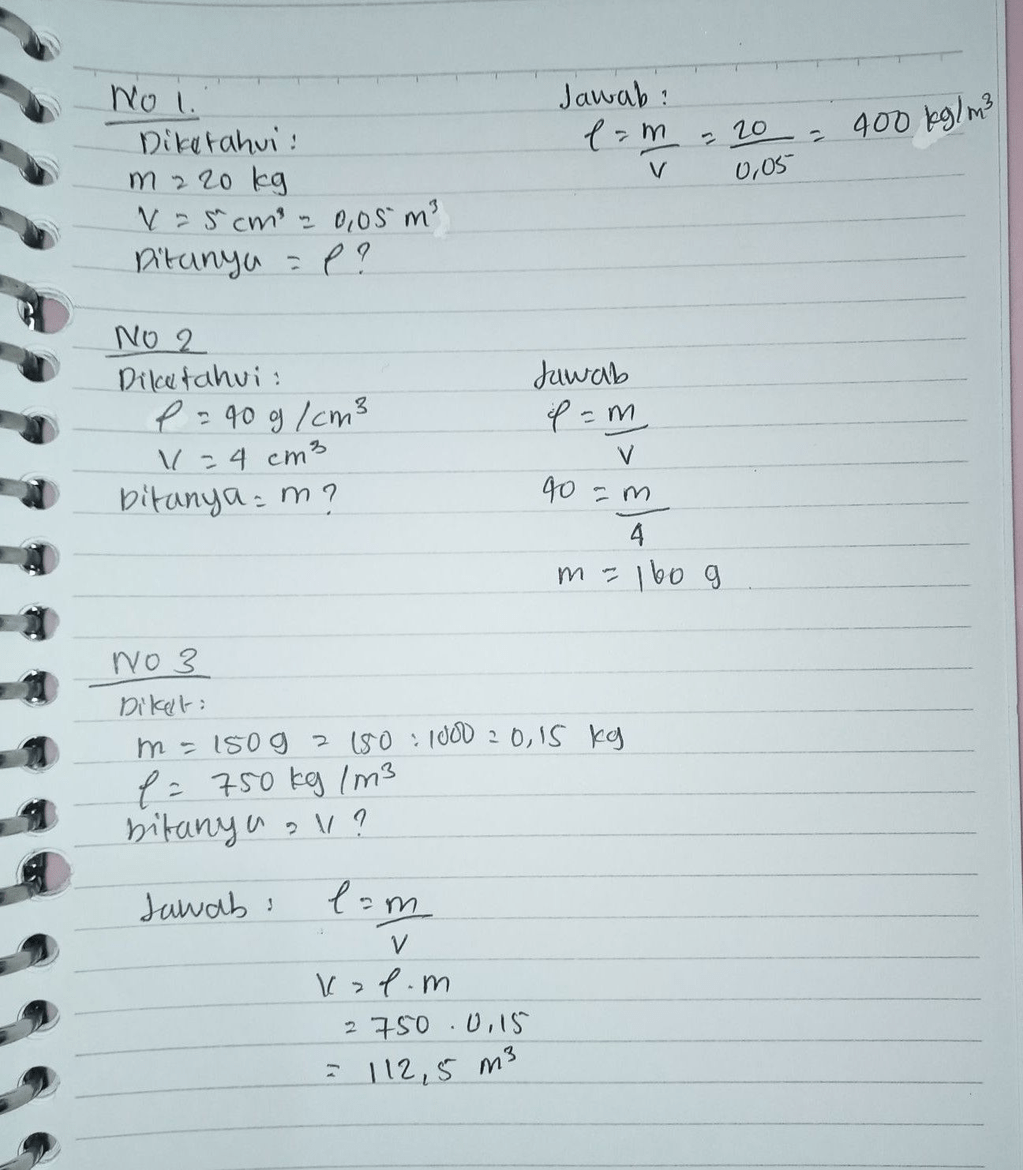 No 1.
Diketahui:
m = 20 kg
V = 5 cm³ = 0,05 m³
Ditanya = ρ?
Jawab:
ρ = m/V = 20/0,05 = 400 kg/m³
No 2
Diketahui:
ρ = 40 g/cm³
V = 4 cm³
Ditanya = m?
Jawab
ρ = m/V
40 = m/4
m = 160 g
No 3
Diket:
m = 150 g = 150 : 1000 = 0,15 kg
ρ = 750 kg/m³
Ditanya = V?
Jawab : ρ = m/V
V = ρ . m
= 750 . 0,15
= 112,5 m³